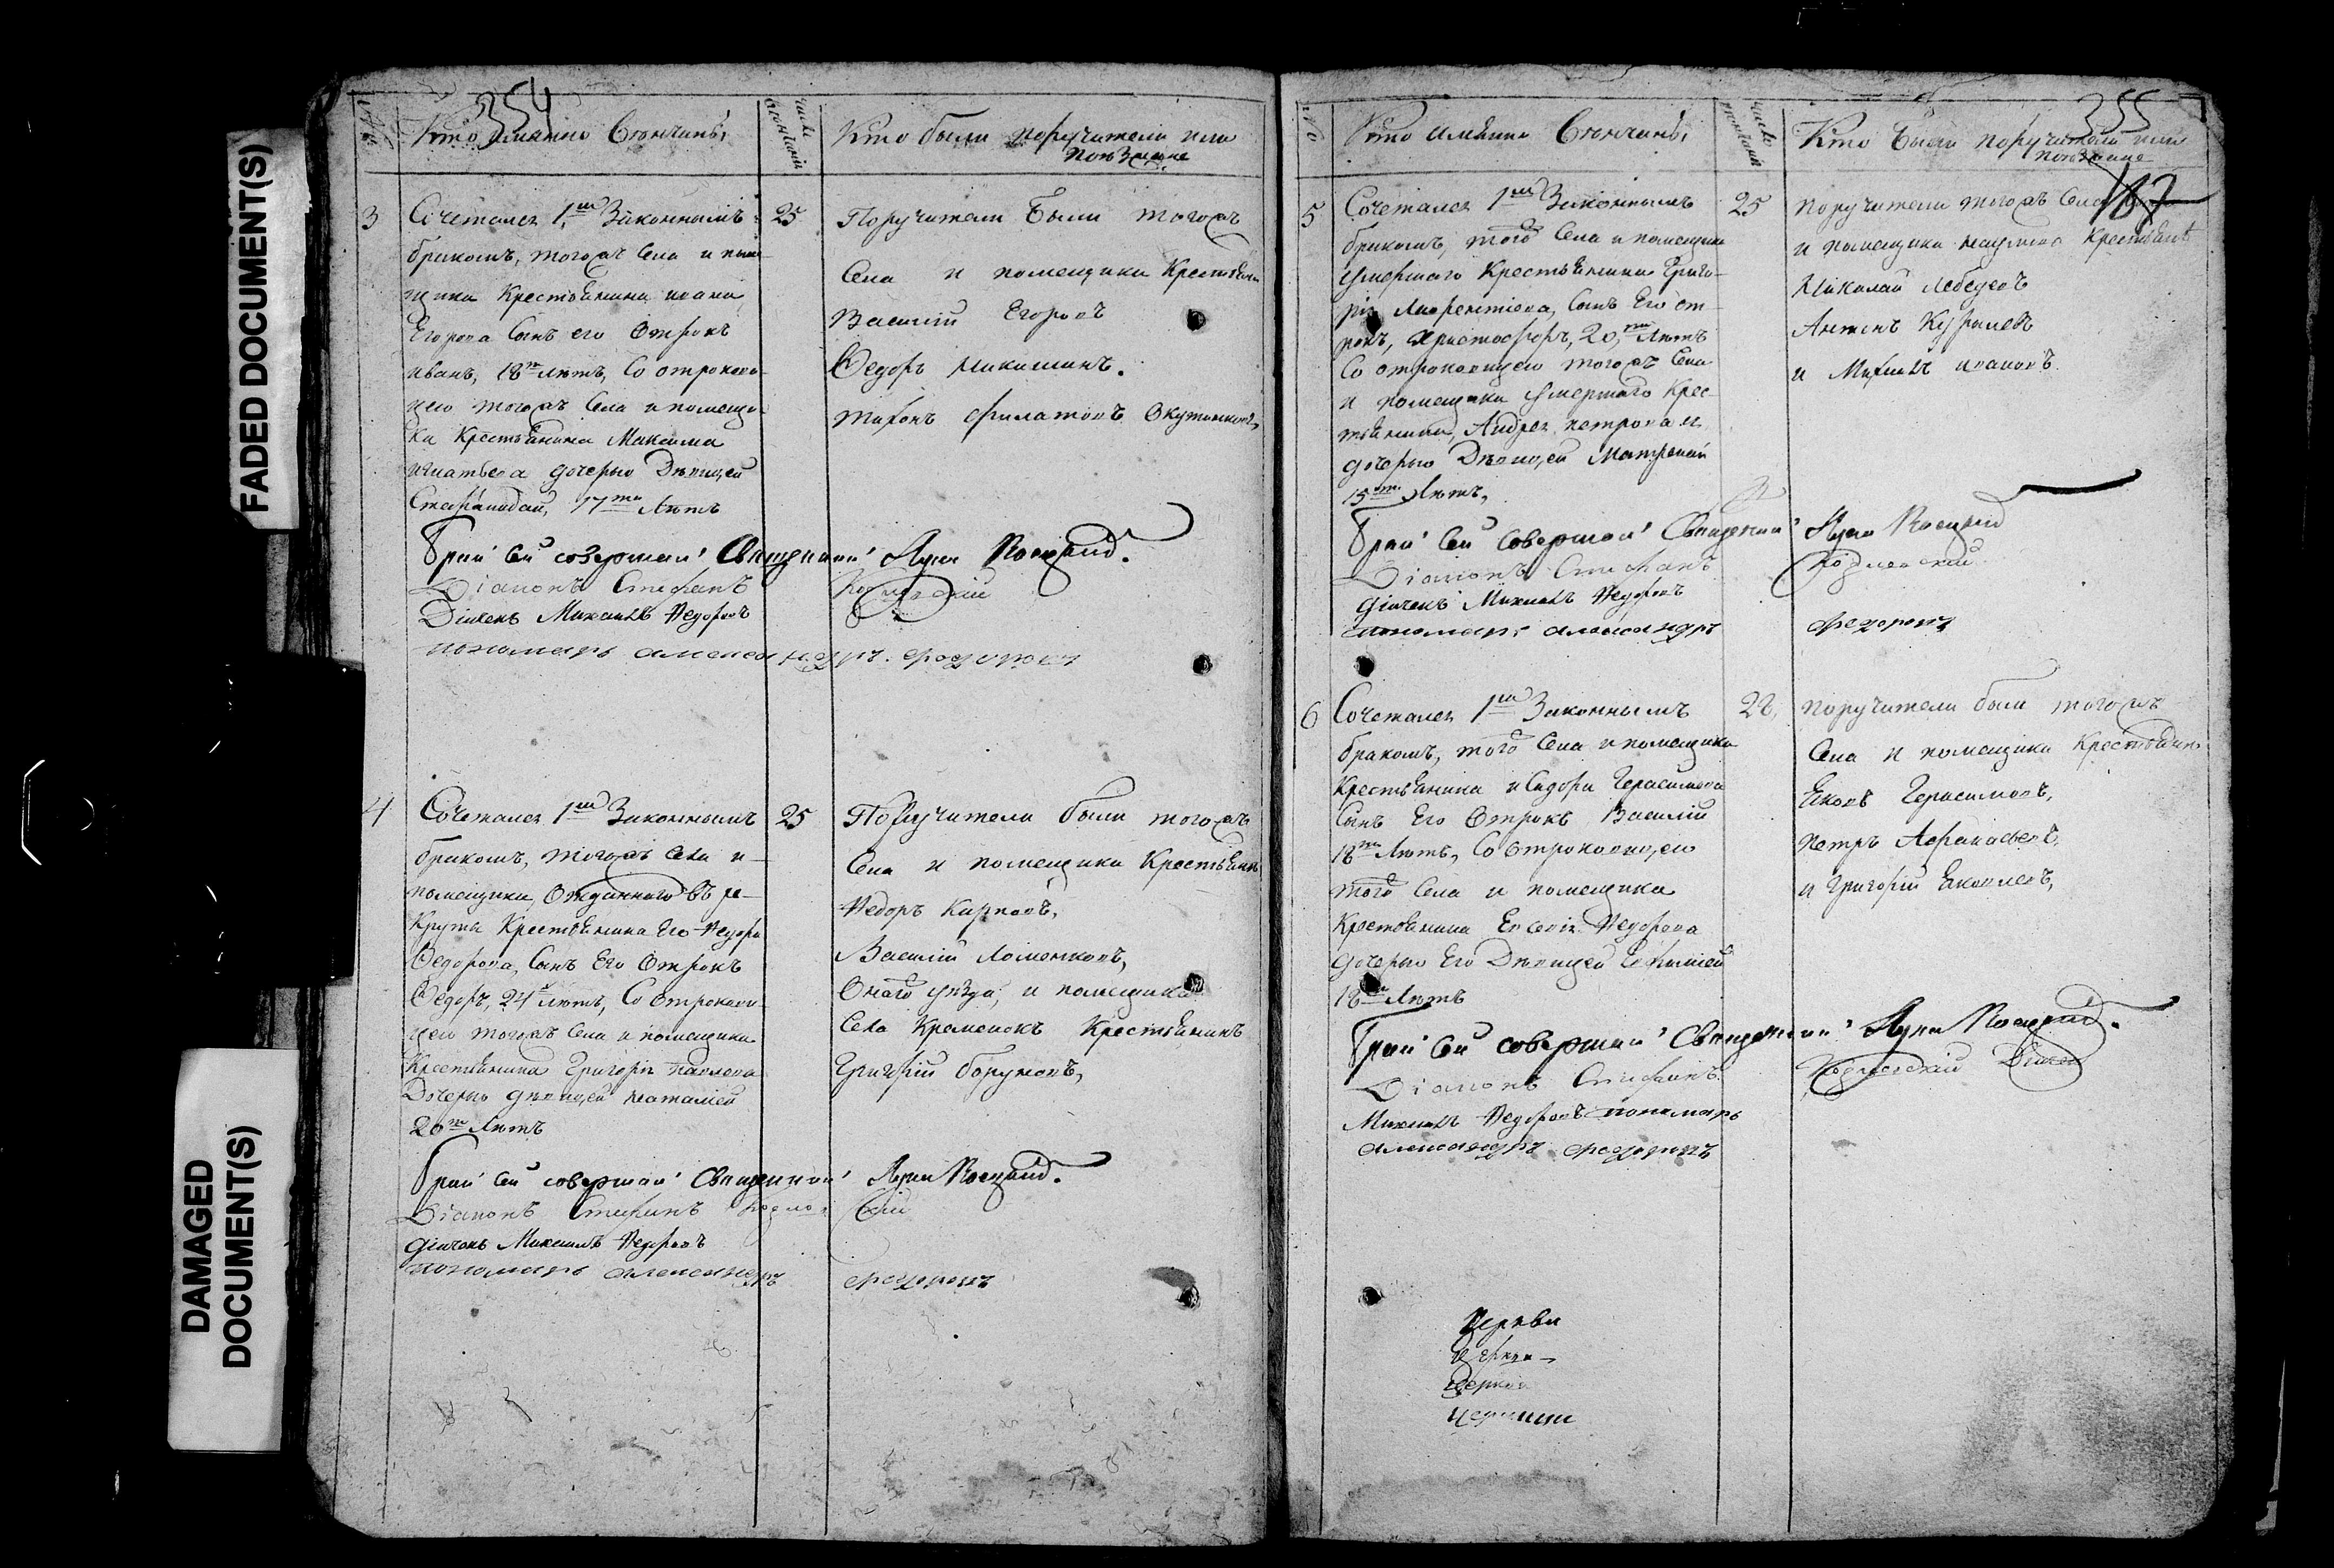 FADED DOCUMENT(S)
DAMAGED
DOCUMENT(S)
354
№
Кто имянно Венчаны,
число венчанiй
Кто были поручители или
поѣзжане
3
Сочетался 1м Законнымъ
бракомъ, тогожъ Села и поме
щика Крестьянина ивана
Егорова Сынъ его Отрокъ
иванъ, 18ти лѣтъ, Со отрокови
цею тогожъ Села и помещи
ка Крестьянина Максима
игнатьева дочерью Дѣвицей
Стефанидой, 17ти Лѣтъ
25
Поручители были тогожъ
Села и помещика Крестьяни
Василiй Егоровъ
Ѳедоръ никитинъ.
тихонъ филатовъ
Бракъ сей совершалъ Священникъ Лука
Дiаконъ Стефанъ
Дiячекъ Михаилъ Ѳедоровъ
пономарь александръ федоровъ
4
Сочетался 1м Законнымъ
бракомъ, тогожъ Села и
помещика, Отданнаго въ ре
круты Крестьянина Его Ѳедора
Ѳедорова, Сынъ Его Отрокъ
Ѳедоръ, 24х лѣтъ, Со Отрокови
цею тогожъ Села и помещика
Крестьянина Григорiя павлова
Дочерью дѣвицей наталiей
20ти Лѣтъ
25
Поручители были тогожъ
Села и помещика Крестьянинъ
Ѳедоръ Карповъ,
Василiй
Онаго уѣзда, и помещика
Села Кременокъ Крестьянинъ
Григорiй
Бракъ сей совершалъ Священникъ Лука
Дiаконъ Стефанъ
дiячекъ Михаилъ Ѳедоровъ
пономарь александръ федоровъ
355
187
№
Кто имянно Венчаны,
число венчанiй
Кто были поручители или
поѣзжане
5
Сочетался 1м Законнымъ
бракомъ, того Села и помещика
умершаго Крестьянина Григо
рiя Лаврентiева, Сынъ Его от
рокъ, христофоръ, 20ти Лѣтъ
Со отроковицею тогожъ Села
и помещика умершаго Крес
тьянина, Андрея петрова
дочерью Дѣвицей Матроной
15ти Лѣтъ,
25
поручители тогожъ Села
и помещика Крестьяне
Николай Лебедевъ
Антонъ
и ивановъ
Бракъ сей совершалъ Священникъ Лука
Дiаконъ Стефанъ
дiячекъ Михаилъ Ѳедоровъ
пономарь александръ федоровъ
6
Сочетался 1м Законнымъ
бракомъ, того Села и помещика
Крестьянина исидора Герасимова
Сынъ Его Отрокъ Василiй
18ти Лѣтъ, Со отроковицею
того Села и помещика
Крестьянина Евсевiя Ѳедорова
дочерью Его Дѣвицей
18ти Лѣтъ
поручители были тогожъ
Села и помещика Крестьянин
Яковъ Герасимовъ,
петръ Афанасьевъ,
и Григорiй Яковлевъ,
Бракъ сей совершалъ Священникъ Лука
Дiаконъ Стефанъ
Михаилъ Ѳедоровъ пономарь
александръ федоровъ
Церкви